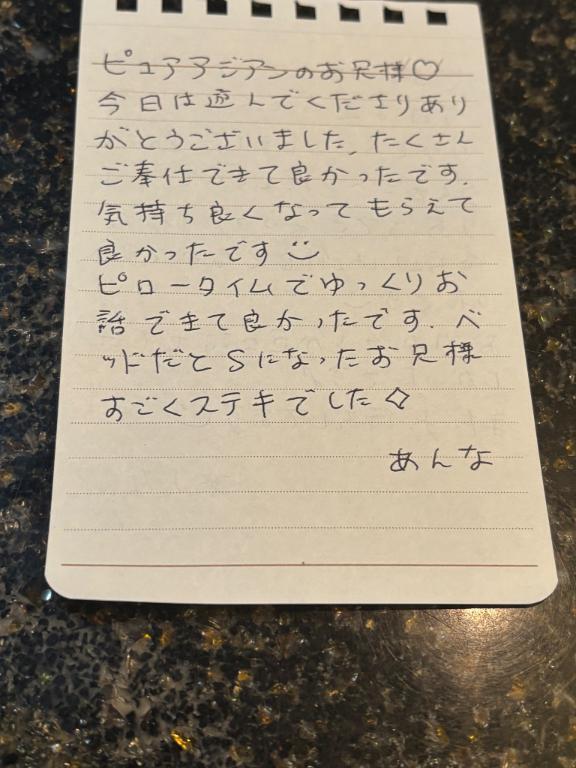 ピュアアジアンのお兄様♡
今日は遊んでくださりあり
がとうございました。たくさん
ご奉仕できて良かったです。
気持ち良くなってもらえて
良かったです
ピロータイムでゆっくりお
話できて良かったです。ベ
ッドだとSになったお兄様
すごくステキでした◇
あんな